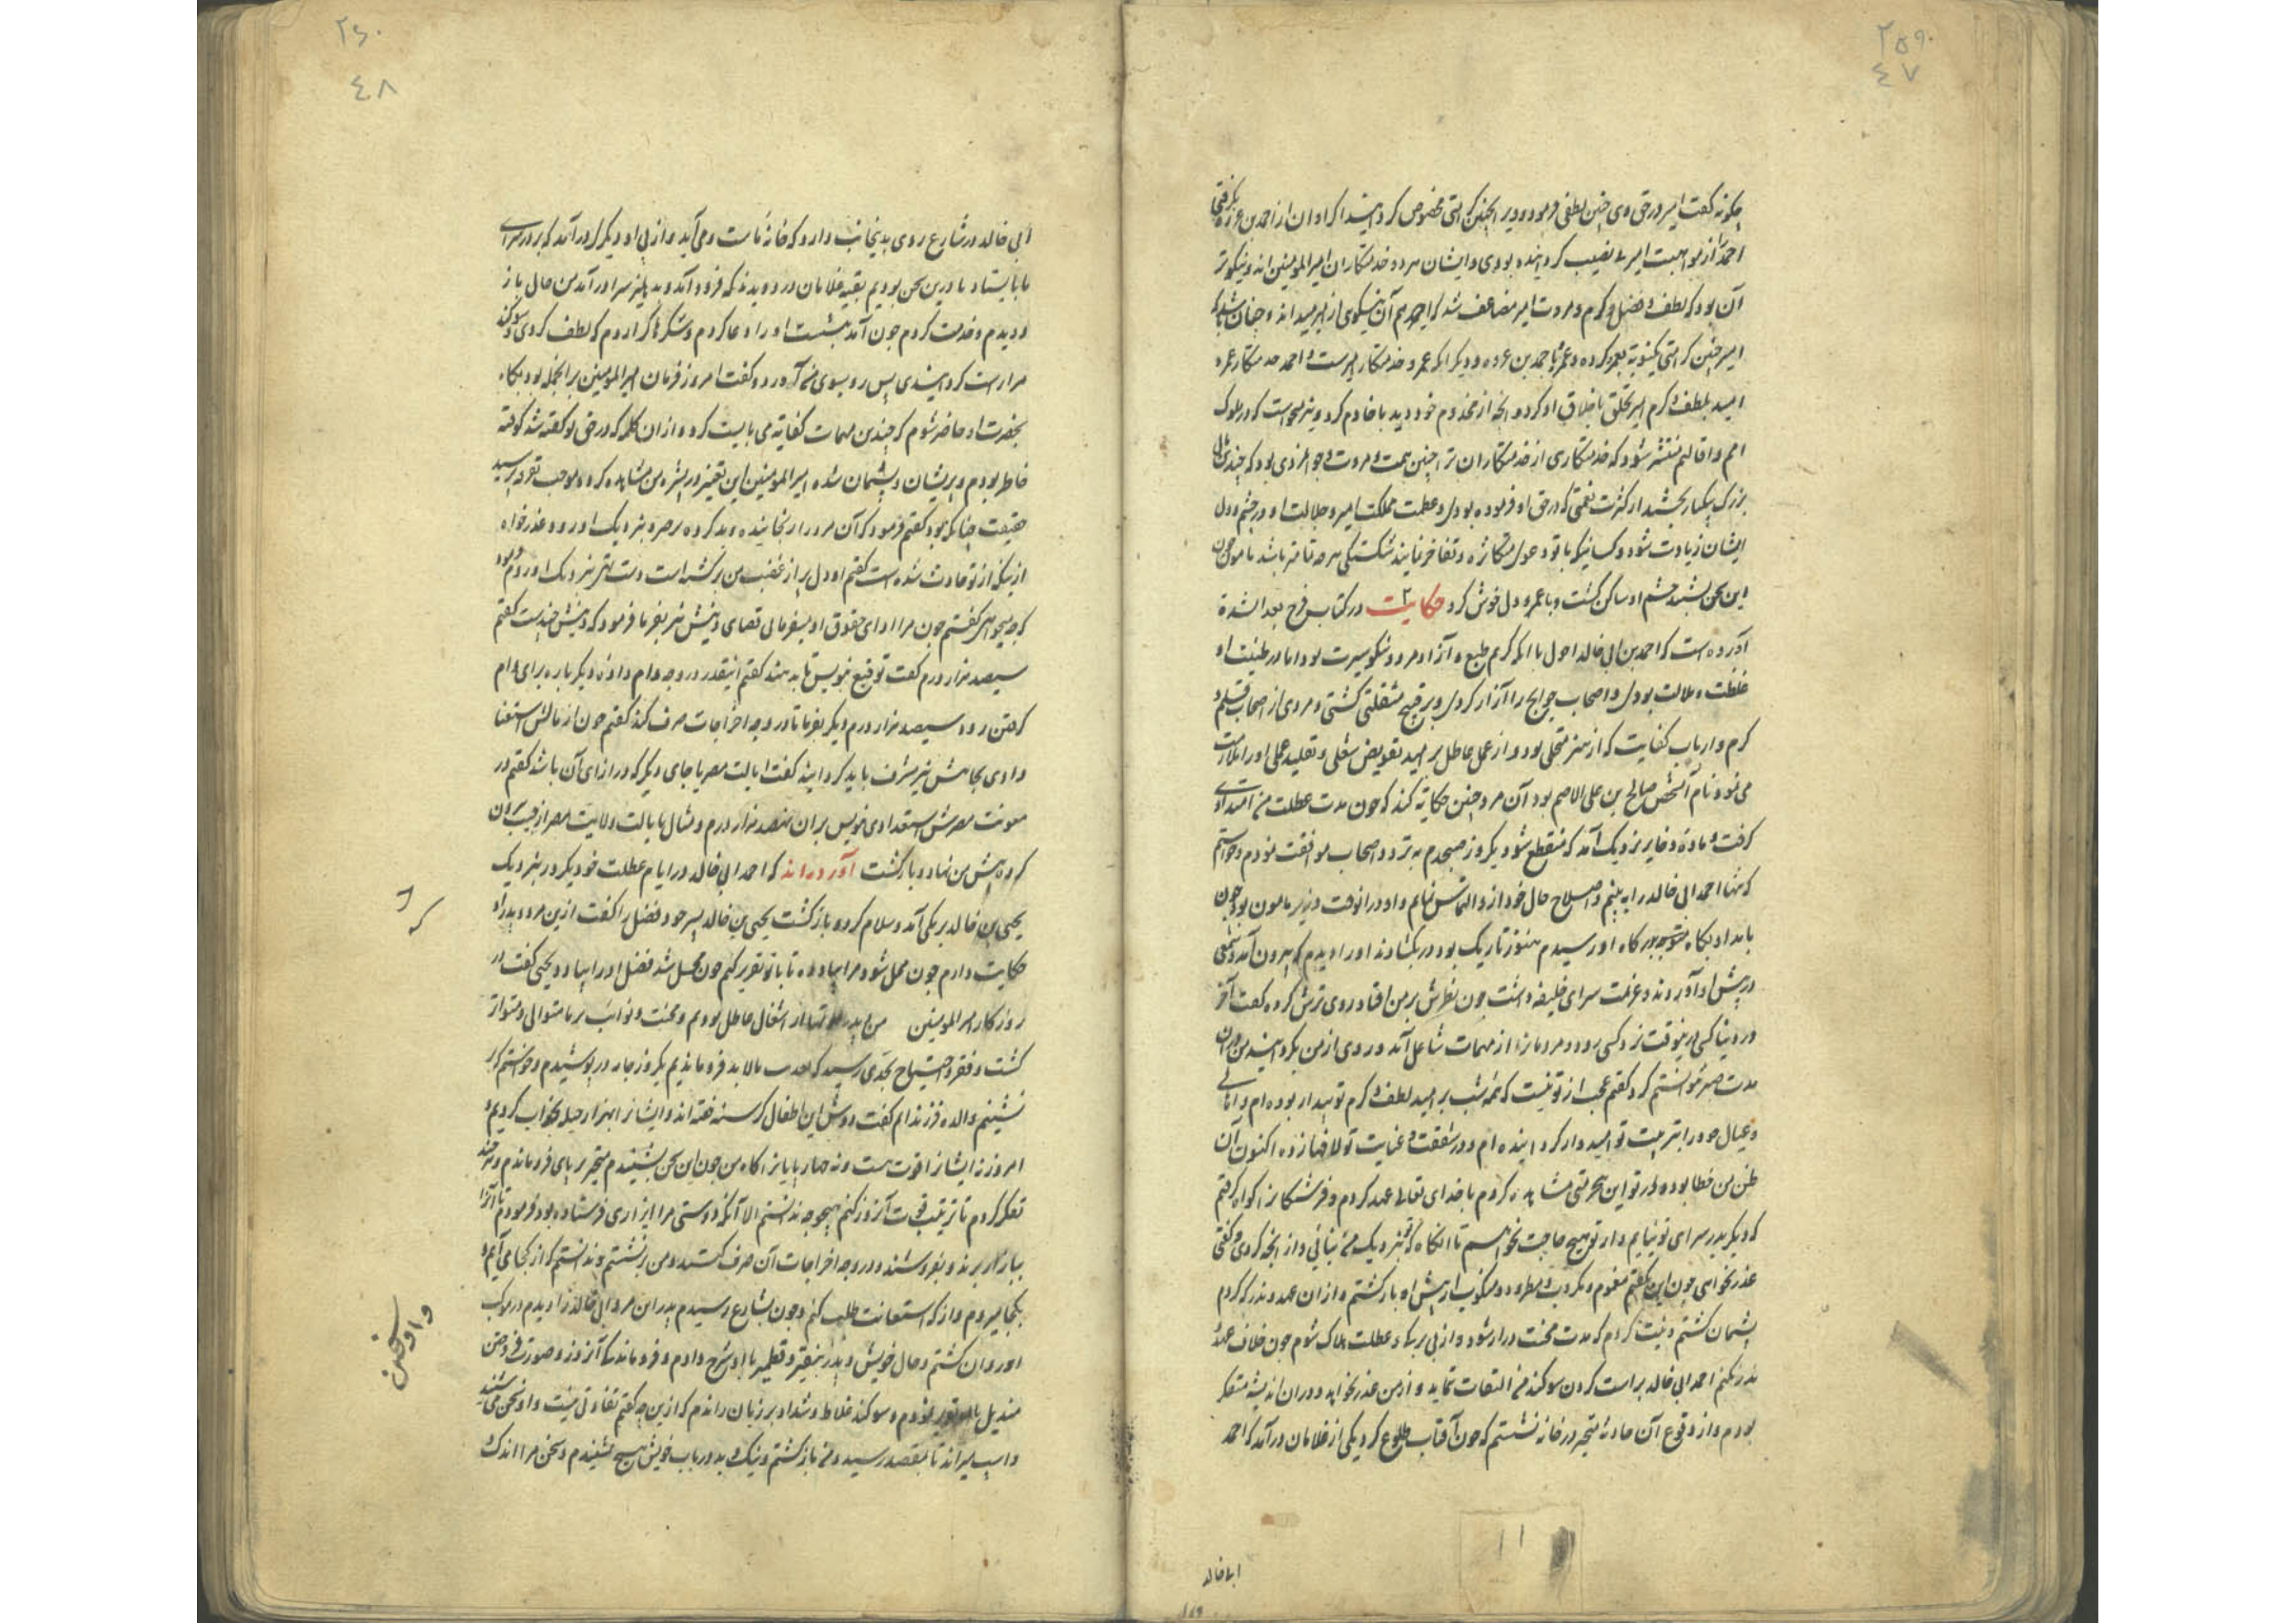 ۲۵۹
٤٧
چکونه کفت امیر در حق وی چنین لطفی فرموده و در ا بچنین کرامتی مخصوص کردانید اکر او آن از احمد بن عروه بکرفتی
احمد را از مواهبت امیر بی نصیب کردانیده بودی و ایشان هر دو خدمتکاران امیر المومنین اند و نیکوتر
آن بود که لطف و فضل و کرم و مروت امیر مضاعف شد که احمد هم آن نیکوی از امیر میداند و چنان باشد که
امیر چنین کرامتی بعمرو کرده و عمرو با احمد بن عروه و دیکر انکه عمرو خدمتکار امیرست و احمد خدمتکار عمرو
امید بلطف و کرم امیر تخلق باخلاق او کرد و انچه از مخدوم خود دید با خادم کرد و نیز میخواست که در ملوک
امم و اقالیم منتشر شود که خدمتکاری از خدمتکاران ترا چنین همت و مروت و جوانمردی بود که چندین مال
بزرک بیکبار بخشید از کثرت نعمتی که در حق او فرموده بودی و عظمت مملکت امیر و جلالت او در چشم و دل
ایشان زیادت شود و کسانیکه با تو دعوی مکاثره و تفاخر نمایند شکستکی هرچه تمامتر باشد مامون چون
این سخن بشنید خشم او ساکن کشت و با عمرو دل خوش کرد حکایت در کتاب فرج بعد الشدة
آورده است که احمد بن ابی خالد احول با انکه کریم طبع و آزاد مرد و نیکو سیرت بود اما در طینت او
غلظت و ملالت بودی و اصحاب حوایج را آزار کردی و برقبح مشغلتی کشتی و مردی از اصحاب قلم و
کرم و ارباب کفایت که از هنر متحلی بود و از عمل عاطل بر امید تفویض شغلی و تقلید عملی او را ملازمت
می نمود نام آنشخص صالح بن علی الاصم بود آن مرد چنین حکایة کند که چون مدت عطلت من امتدادی
کرفت و مادهٔ ذخایر نزدیک آمد که منقطع شود یکروز صبحدم به تردد اصحاب موافقت نمودم و خواستم
که تنها احمد ابی خالد را به بینم و اصلاح حال خود از و التماس نمایم و او در انوقت وزیر مامون بود چون
بامداد بکاه بدرکاه او رسیدم هنوز تاریک بود در بکشادند او را دیدم که بیرون آمد و شمعی
در پیش او آوردند و عزیمت سرای خلیفه داشت چون نظرش بر من افتاد روی ترش کرد و کفت آخر
در دنیا کسی در ینوقت نزد کسی رود و مردمانرا از مهمات شاغل آید و روی از من بکردانید من در ان
مدت صبر نتوانستم کرد کفتم عجب از تو نیست که همه شب بر امید لطف و کرم تو بیدار بوده ام و
و عیال خود را بتربیت تو امیدوار کردانیده ام و در شفقت و عنایت تو لافها زده اکنون آن
ظن من خطا بوده و از تو این بیحرمتی مشاهده کردم با خدای تعالی عهد کردم و فرشتکانرا کواه کرفتم
که دیکر بدر سرای تو نیایم و از تو هیچ حاجت نخواهم تا انکاه که تو بنزدیک من نیائی و از انچه کردی و کفتی
عذر نخواهی چون این بکفتم مغموم و مکروب و مطرود و منکوب از پیش او بازکشتم و از ان عهد و نذر که کردم
پشیمان کشتم و نیت کردم که مدت محنت دراز شود و از بی برکی و عطلت هلاک شوم چون خلاف عهد
نذر نکنم احمد ابی خالد براست کردن سوکند من التفات ننماید و از من عذر نخواهد و در ان اندیشه متفکر
بودم و از وقوع آن حادثه متحیر در خانه نشستم که چون آفتاب طلوع کرد یکی از غلامان درآمد که احمد
ابی خالد
۲۶۰
٤٨
ابی خالد در شارع روی بدینجانب دارد که خانهٔ ماست و می آید و از پی او دیکری درآمد که بر در سرای
ما بایستاد ما درین سخن بودیم بقیه غلامان در دویدند که فرود آمد و بدهلیز سرا درآمد من حال باز
دویدم و خدمت کردم چون آمد بنشست او را دعا کردم و شکرها کزاردم که لطف کردی و سوکند
مرا راست کردانیدی پس رو بسوی من آورد و کفت امروز فرمان امیر المومنین بر انجمله بود بکاه
بحضرت او حاضر شوم که چندین مهمات کفایة می بایست کرد و از ان کلمه که در حق تو کفته شد کوفته
خاطر بودم و پریشان و پشیمان شده امیر المومنین این تغیر در بشره من مشاهده کرد و موجب تغیر پرسید
حقیقت چنانکه بود کفتم فرمود که آن مرد را رنجانیده و بد کرده برخیز و بنزدیک او رو و عذر خواه
از آنکه از تو حادث شده است کفتم او دل پر از غضب من برکشته است دست تهی نزدیک او روم فرمود
که چه میخواهی کفتم چون مرا ادای حقوق او میفرمائی قضای دینش نیز بفرما فرمود که دینش چندست کفتم
سیصد هزار درم کفت توقیع نویس تا بدهند کفتم اینقدر در وجه وام داد و دیکر باره برای وام
کرفتن رود سیصد هزار درم دیکر بفرما تا در وجه اخراجات صرف کند کفتم چون از مالش استغنا
دادی بجاهش نیز مشرف باید کردانید کفت ایالت مصر یا جای دیکر که در ازای آن باشد کفتم در
معونت مصرش استعدادی نویس بر ان صد هزار درم و مثال بایالت ولایت مصر از جیب بیرون
کرد و پیش من نهاد و بازکشت آورده اند که احمد ابی خالد در ایام عطلت خود یکروز بنزدیک
یحیی بن خالد برمکی آمد و سلام کرد و بازکشت یحیی بن خالد پسر خود فضل را کفت ازین مرد و پدر او
حکایت دارم چون محل شود مرا بیاد ده تا با تو تقریر کنم چون محل شد فضل او را بیاد داد یحیی کفت در
روزکار امیر المومنین من و پدرم از اشغال عاطل بودیم و محنت و نوائب بر ما متوالی و متواتر
کشت و فقر و احتیاج بحدی رسید که از ما لابد فرو ماندیم یکروز جامه در پوشیدم و خواستم که بر
نشینم والده فرزندانم کفت دوش این اطفال کرسنه خفته اند و ایشانرا بهزار حیله بخواب کردیم و
امروز نه ایشانرا قوت است و نه چهارپایانرا کاه من چون این سخن بشنیدم متحیر بر پای فرو ماندم و هرچند
تفکر کردم تا ترتیب قوت آنروز کنم هیچ وجه ندانستم الا آنکه دوستی مرا ایزاری فرستاده بود فرمودم تا آنرا
ببازار برند و بفروشند و در وجه اخراجات آن صرف کنند و من برنشستم و ندانستم که از کجا می آیم و
بکجا میروم و از که استعانت طلب کنم و چون بشارع رسیدم پدر این مرد ابی خالد را دیدم در موکب
او روان کشتم و حال خویش و پدر بنقیر و قطمیر با او شرح دادم و فرو ماندکی آنروز و صورت فروختن
مندیل با او تقریر نمودم و سوکند غلاظ و شداد بر زبان راندم که ازین چه کفتم تفاوتی نیست و او سخن می شنید
و اسب میراند تا بمقصد رسید و من بازکشتم و نیک و بد در باب خویش هیچ نشنیدم و سخن مرا اندک
و او سخن